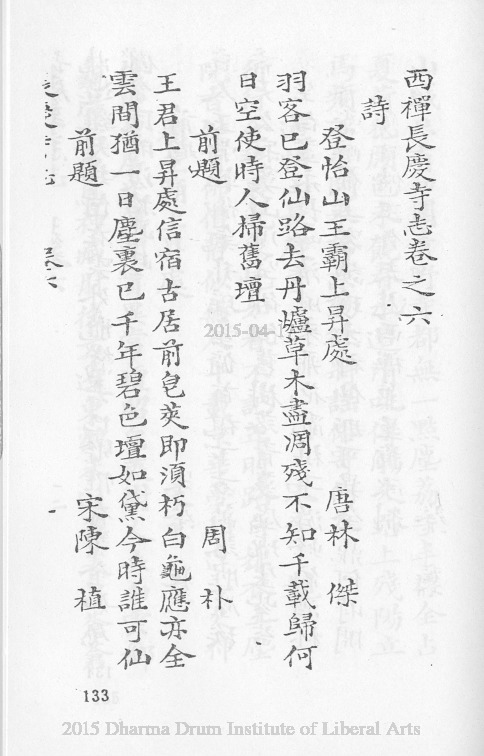 西禪長慶寺志卷之六
詩
登怡山王霸上昇處　唐林　傑
羽客已登仙路去丹爐草木盡凋殘不知千載歸何
日空使時人掃舊壇
前題　周　朴
王君上昇處信宿古居前皂莢即須朽白龜應亦全
雲間猶一日塵裏已千年碧色壇如黛今時誰可仙
前題　宋陳　植
一
133
2015-04-1
2015 Dharma Drum Institute of Liberal Arts